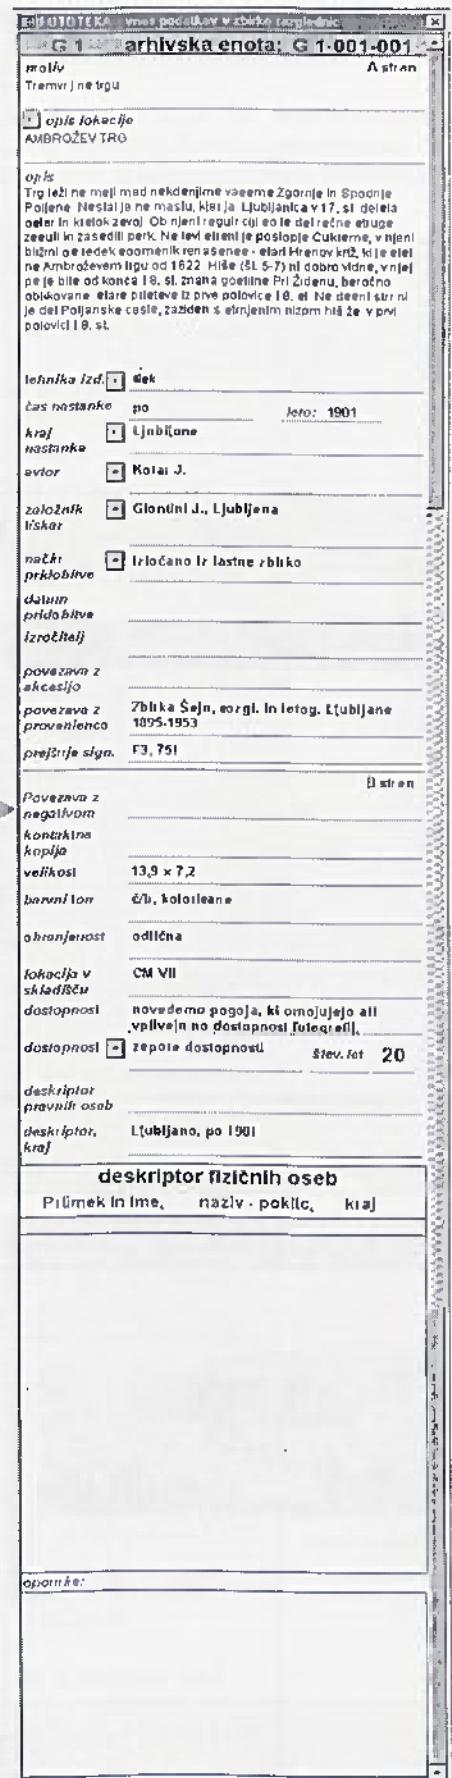 FOTOTEKA - vnos podatkov v zbirko razglednic
G 1 arhivska enota: G 1-001-001
motiv A stran
Tramvaj na trgu
opis lokacije
AMBROŽEV TRG
opis
Trg leži na meji med nekdanjima vasema Zgornje in Spodnje
Poljane. Nastal je na mestu, kjer je Ljubljanica v 17. st. delala
oster in kratek zavoj. Ob njeni regulaciji so le del rečne struge
zasuli in zasadili park. Na levi strani je poslopje Cukrarne, v njeni
bližini se redek spomenik renesanse - stari Hrenov križ, ki je stal
na Ambroževem trgu od 1622. Hiše (št. 5-7) ni dobro vidna, v njej
pa je bila od konca 18. st. znana gostilna Pri Židanu, baročno
oblikovane stare prleteve iz prve polovice 18. st. Na desni strani
je del Poljanske ceste, zazidan s strnjenim nizom hiš že v prvi
polovici 18. st.
tehnika izd. tisk
čas nastanka po leto: 1901
kraj Ljubljana
nastanka
avtor Kotar J.
založnik Giontini J., Ljubljana
tiskar
način Izločano iz lastne zbirke
pridobitve
datum
pridobitve
izročitelj
povezava z
akcesijo
povezava z Zbirka Šejn, razgl. in fotog. Ljubljane
provenienco 1895-1953
prejšnje sign. F3, 751
B stran
Povezava z
negativom
kontaktna
kopija
velikost 13,9 x 7,2
barvni ton č/b, kolorirana
ohranjenost odlična
lokacija v CM VII
skladišču
dostopnost navedemo pogoje, ki omejujejo ali
vplivajo na dostopnost fotografij.
dostopnost zapora dostopnosti štev. let 20
deskriptor
pravnih oseb
deskriptor, Ljubljana, po 1901
kraj
deskriptor fizičnih oseb
Priimek in ime, naziv - poklic, kraj
opombe: